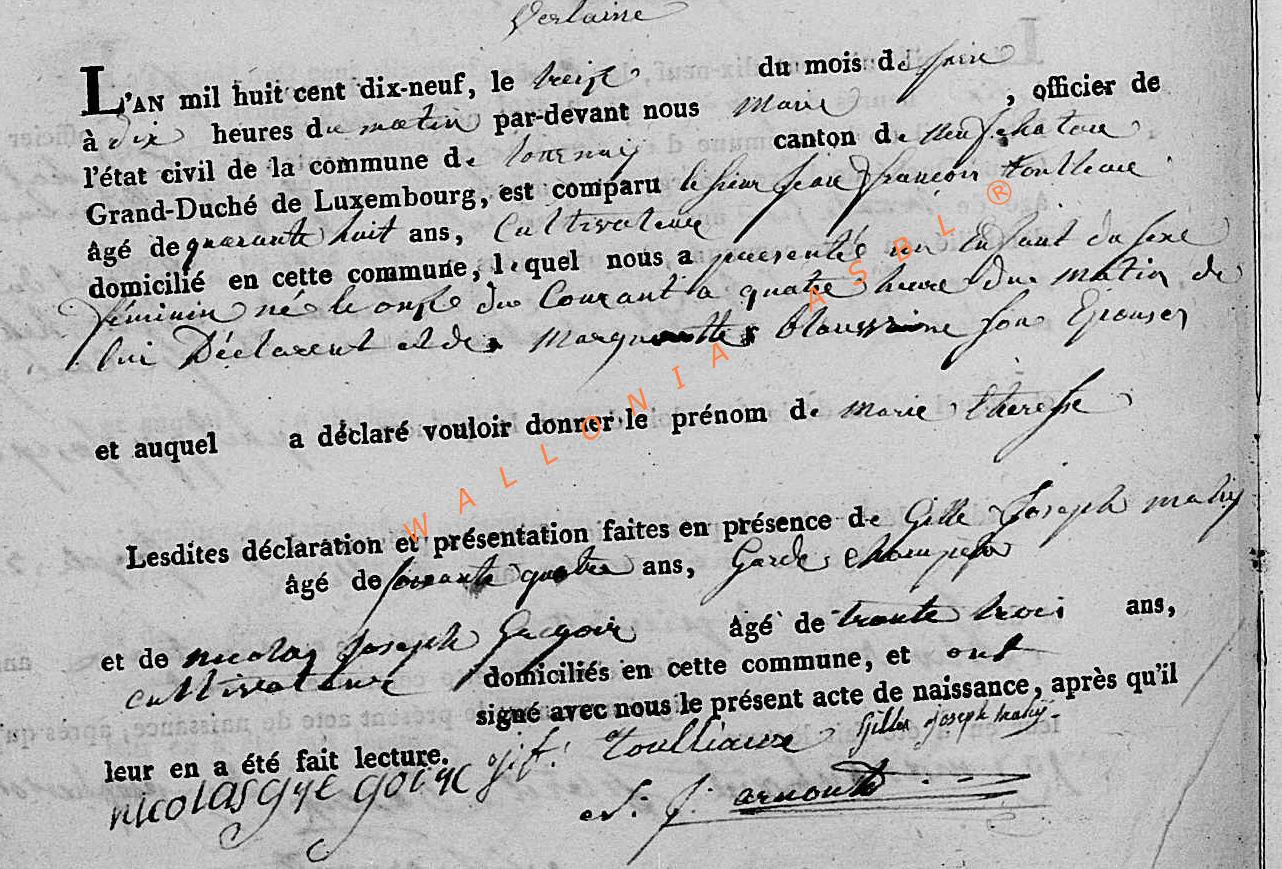 Verlaine
L'AN mil huit cent dix-neuf, le treize du mois de juin
à dix heures du matin par-devant nous Maire , officier de
l'état civil de la commune de tournay canton de neufchateau
Grand-Duché de Luxembourg, est comparu le sieur jean françois toulleaux
âgé de quarante huit ans, Cultivateure
domicilié en cette commune, lequel nous a presenté un Enfant du sexe
féminin né le onze du Courant a quatre heure du matin de
lui Déclarent et de Blaussine son Epouser
et auquel a déclaré vouloir donner le prénom de marie theresse
Lesdites déclaration et présentation faites en présence de Gille Joseph mahy
âgé de soixante quatre ans, Garde champetre
et de nicolas joseph Gregoir âgé de trante trois ans,
cultivateure domiciliés en cette commune, et ont
signé avec nous le présent acte de naissance, après qu'il
leur en a été fait lecture. j.f. toulliaux Gilles joseph mahy
nicolas gregoire
j. arnould
WALLONIA ASBL ®